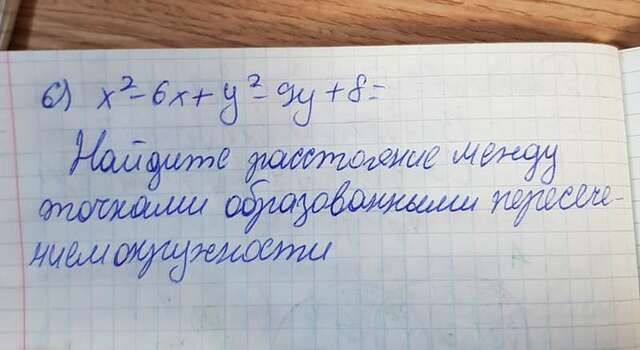 б) x²-6x+y²-9y+8=
Найдите расстояние между
точками образованными пересече-
нием окружности